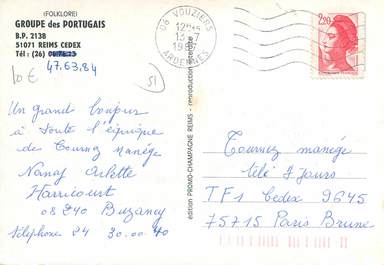 (FOLKLORE)
GROUPE des PORTUGAIS
B.P. 2138
51071 REIMS CEDEX
Tél : (26)
47.63.84
10€
51
08 VOUZIERS
13-7
1987
ARDENNES
2,20
Un grand bonjour
à toute l'équipe
de Tournez Manège
Nanay Arlette
Harricourt
08240 Buzancy
téléphone 24 30.00 40
édition PROMO-CHAMPAGNE REIMS - reproduction interdite
Tournez manège
Télé 7 Jours
TF1 Cedex 9645
75715 Paris Brune